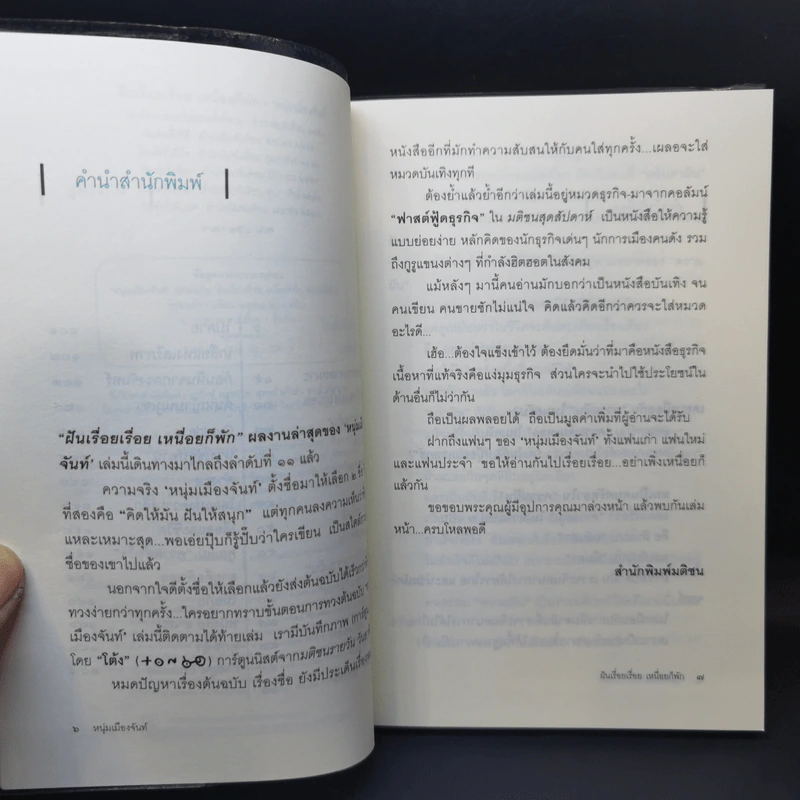 คำนำสำนักพิมพ์
"ฝันเรื่อยเรื่อย เหนื่อยก็พัก" ผลงานล่าสุดของ 'หนุ่มเมือง
จันท์' เล่มนี้เดินทางมาไกลถึงลำดับที่ ๑๑ แล้ว
ความจริง 'หนุ่มเมืองจันท์' ตั้งชื่อมาให้เลือก ๒ ชื่อ
ที่สองคือ "คิดให้มัน ฝันให้สนุก" แต่ทุกคนลงความเห็น
แหละเหมาะสุด...พอเอ่ยปุ๊บก็รู้ปั๊บว่าใครเขียน เป็นสไตล์
ชื่อของเขาไปแล้ว
นอกจากใจดีตั้งชื่อให้เลือกแล้วยังส่งต้นฉบับได้เร็ว
ทวงง่ายกว่าทุกครั้ง...ใครอยากทราบขั้นตอนการทวงต้นฉบับ
เมืองจันท์' เล่มนี้ติดตามได้ท้ายเล่ม เรามีบันทึกภาพ (การ์ตูน
โดย "โต้ง" การ์ตูนนิสต์จากมติชนรายวัน
หมดปัญหาเรื่องต้นฉบับ เรื่องชื่อ ยังมีประเด็นเรื่อง
๖ หนุ่มเมืองจันท์
หนังสืออีกที่มักทำความสับสนให้กับคนใส่ทุกครั้ง...เผลอจะใส่
หมวดบันเทิงทุกที
ต้องย้ำแล้วย้ำอีกว่าเล่มนี้อยู่หมวดธุรกิจ-มาจากคอลัมน์
"ฟาสต์ฟู้ดธุรกิจ" ใน มติชนสุดสัปดาห์ เป็นหนังสือให้ความรู้
แบบย่อยง่าย หลักคิดของนักธุรกิจเด่นๆ นักการเมืองคนดัง รวม
ถึงกูรูแขนงต่างๆ ที่กำลังฮิตฮอตในสังคม
แม้หลังๆ มานี้คนอ่านมักบอกว่าเป็นหนังสือบันเทิง จน
คนเขียน คนขายชักไม่แน่ใจ คิดแล้วคิดอีกว่าควรจะใส่หมวด
อะไรดี...
เฮ้อ...ต้องใจแข็งเข้าไว้ ต้องยึดมั่นว่าที่มาคือหนังสือธุรกิจ
เนื้อหาที่แท้จริงคือแง่มุมธุรกิจ ส่วนใครจะนำไปใช้ประโยชน์ใน
ด้านอื่นก็ไม่ว่ากัน
ถือเป็นผลพลอยได้ ถือเป็นมูลค่าเพิ่มที่ผู้อ่านจะได้รับ
ฝากถึงแฟนๆ ของ 'หนุ่มเมืองจันท์' ทั้งแฟนเก่า แฟนใหม่
และแฟนประจำ ขอให้อ่านกันไปเรื่อยเรื่อย...อย่าเพิ่งเหนื่อยก็
แล้วกัน
ขอขอบพระคุณผู้มีอุปการคุณมาล่วงหน้า แล้วพบกันเล่ม
หน้า...ครบโหลพอดี
สำนักพิมพ์มติชน
ฝันเรื่อยเรื่อย เหนื่อยก็พัก ๗